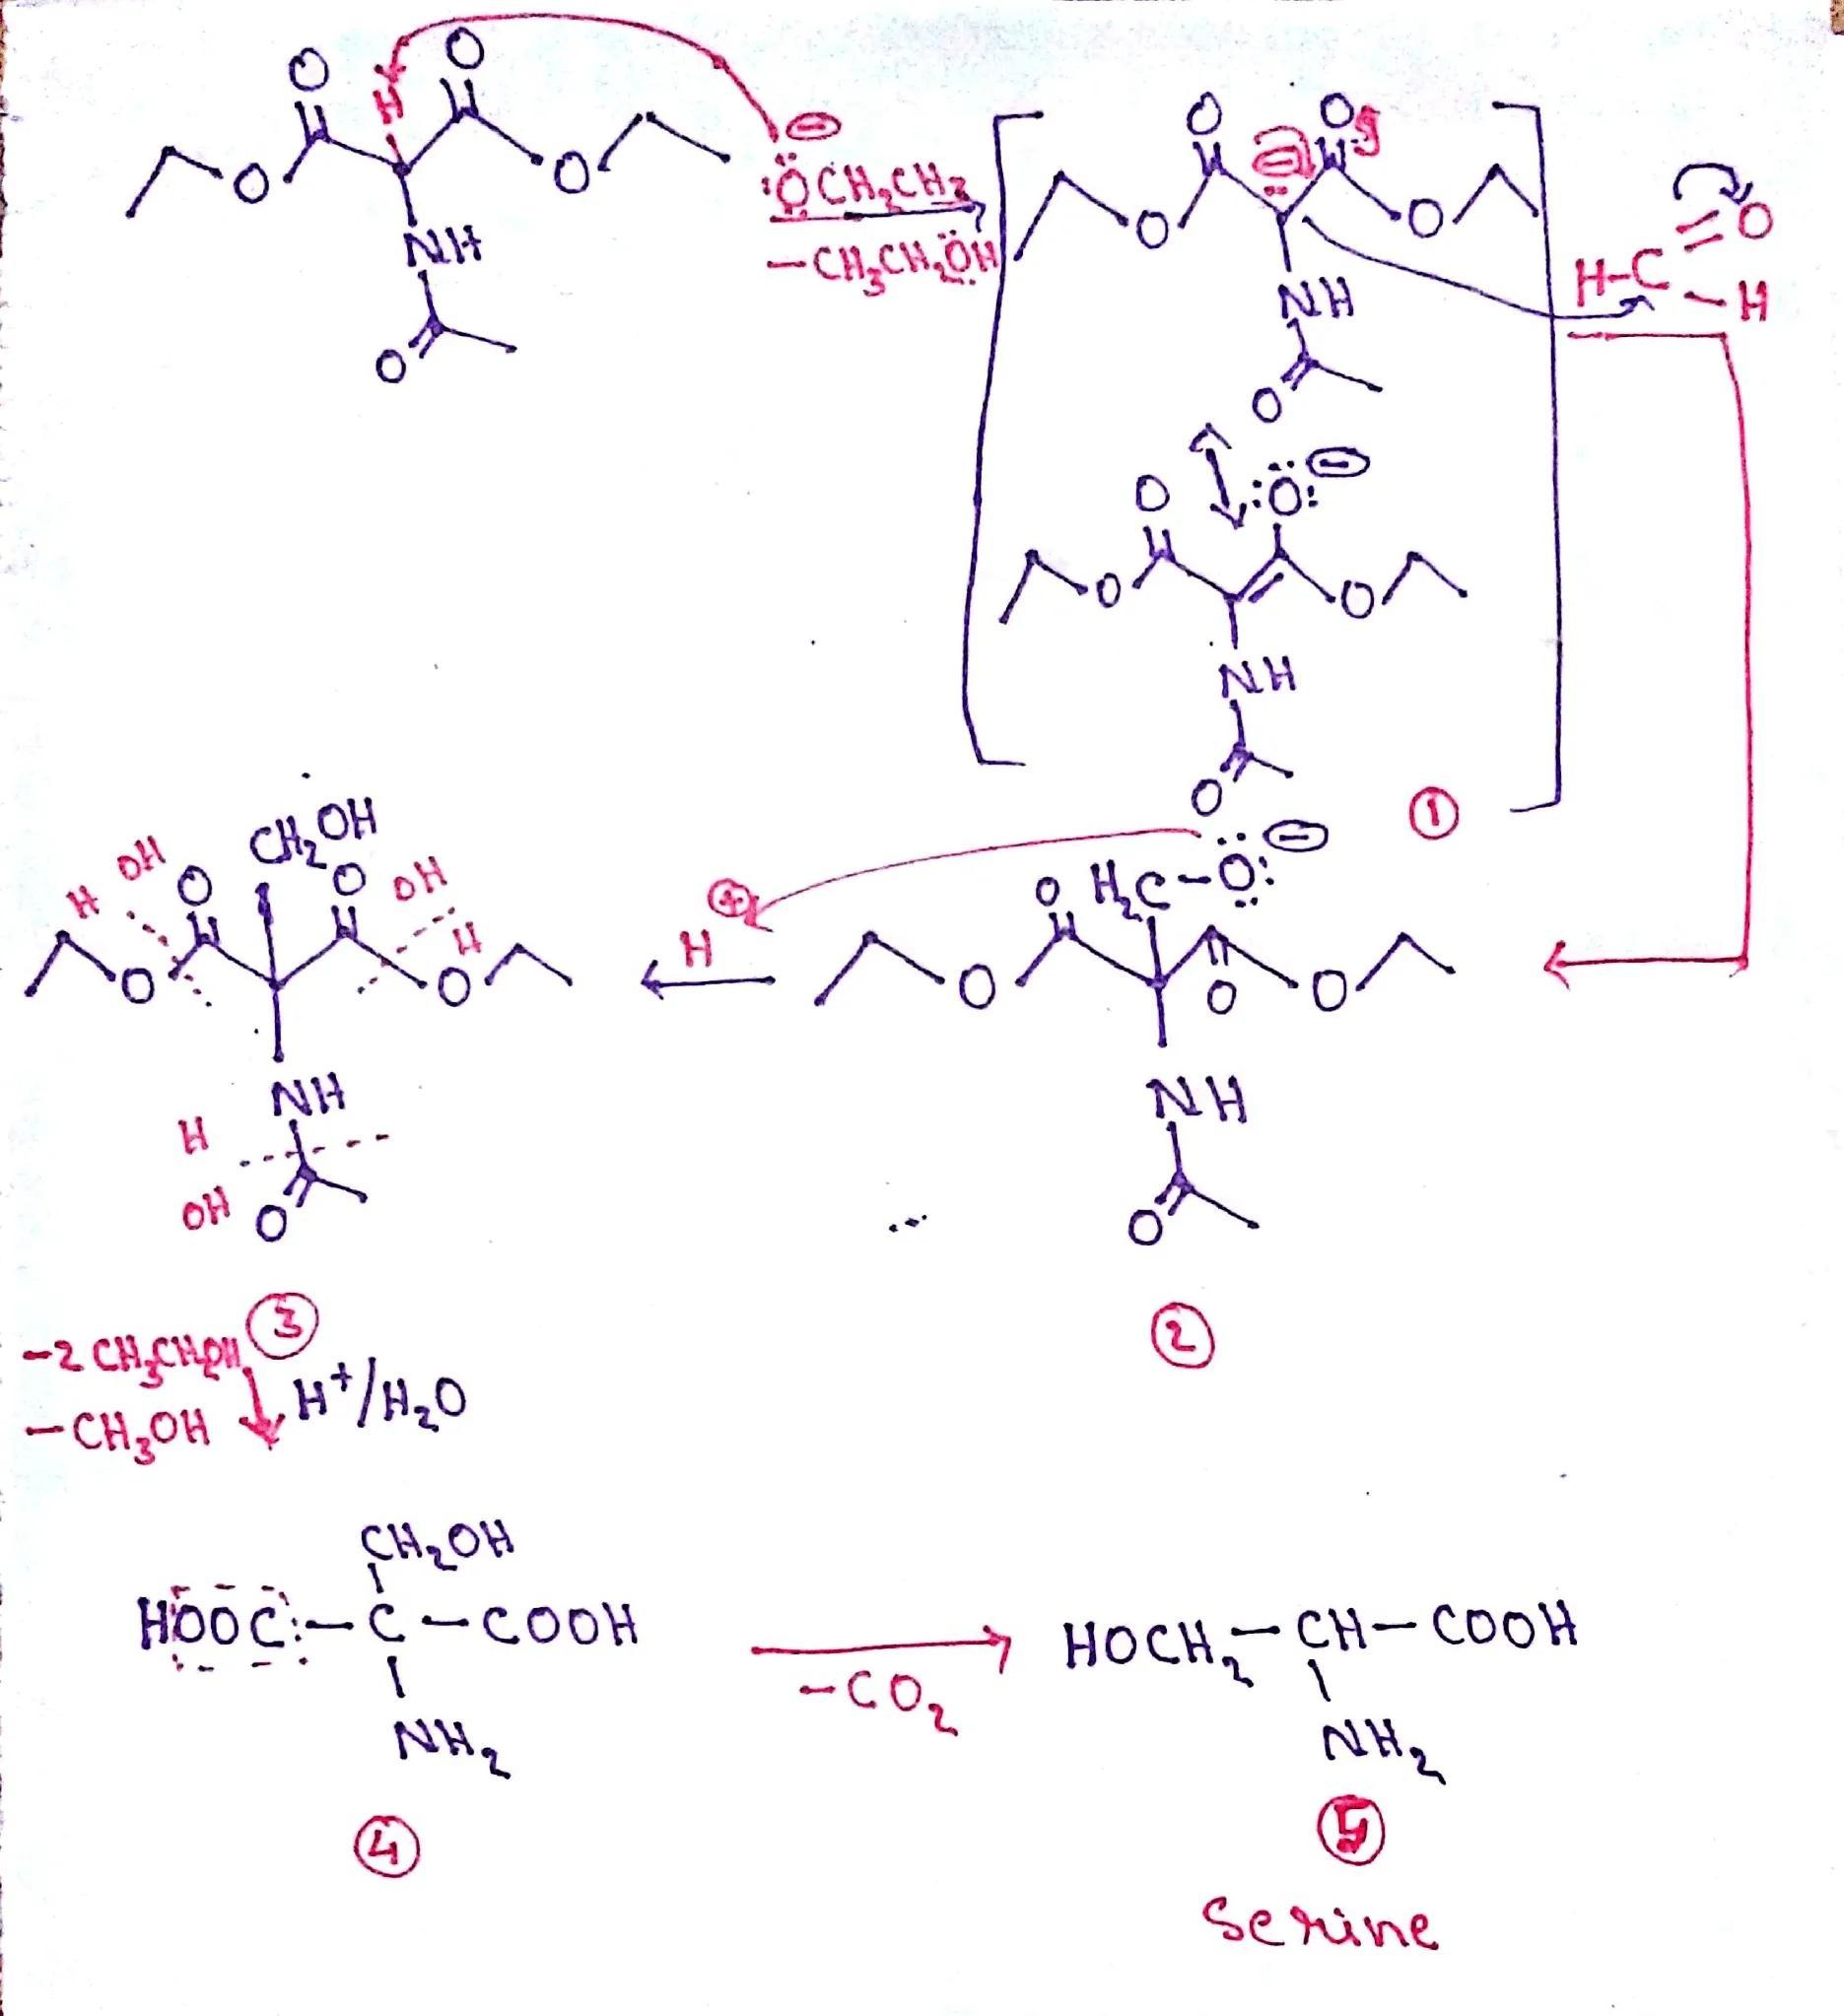 O O
H
O O
⊖
:ÖCH₂CH₃
−CH₃CH₂ÖH
NH
O
O ⊖ O
O O
NH
O
O
H−C
H
O :Ö: ⊖
O O
NH
O
①
CH₂OH
H OH O O OH H
O O
NH
H
OH O
③
H ⊕
O H₂C−Ö: ⊖
O O O
NH
O
②
−2 CH₃CH₂OH
−CH₃OH
H⁺/H₂O
CH₂OH
HOOC−C−COOH
NH₂
④
−CO₂
HOCH₂−CH−COOH
NH₂
⑤
Serine